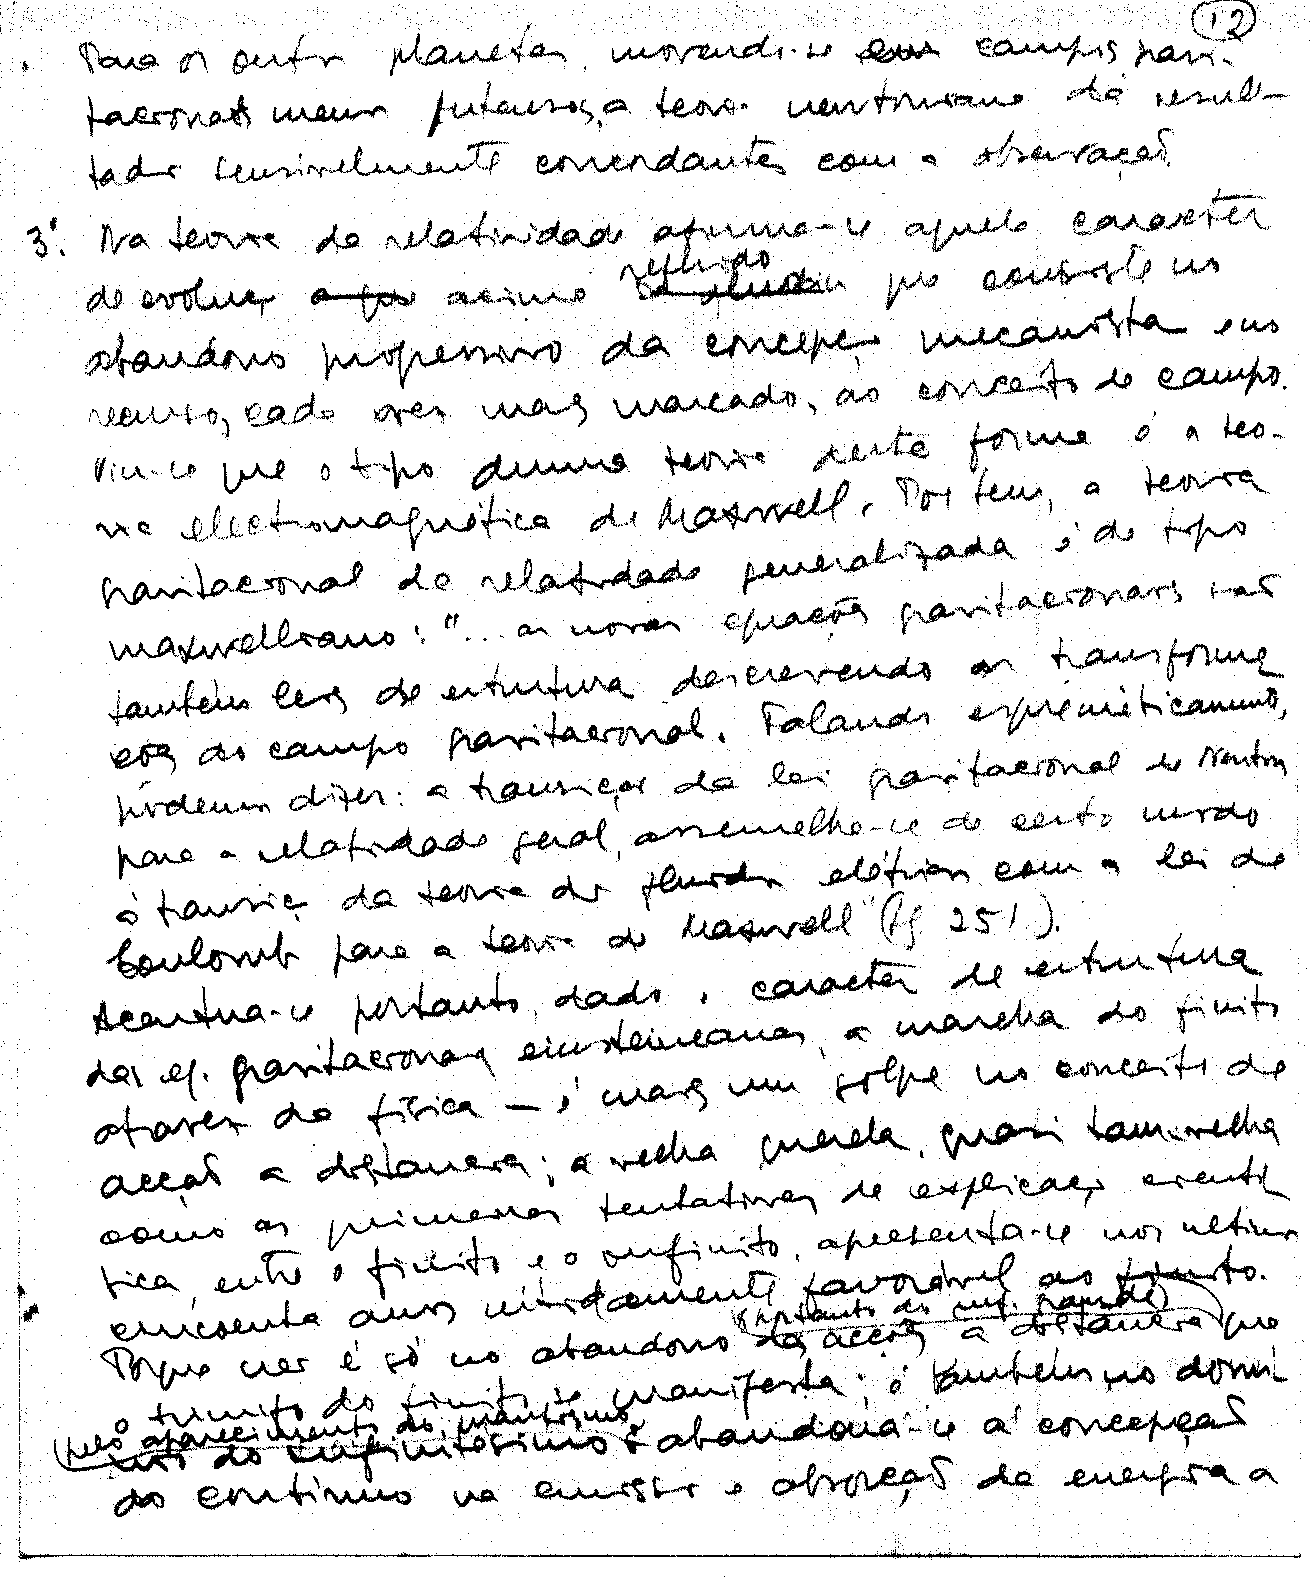 12
Para os outros planetas, movendo-se em campos gravi-
tacionais menos intensos, a teoria newtoniana dá resul-
tados sensivelmente concordantes com a observação.
3º. Na teoria da relatividade afirma-se aquele caracter
referido
de evolução a que acima que consiste no
abandono progressivo da concepção mecanista e no
recurso, cada vez mais marcado, ao conceito de campo.
Viu-se que o tipo duma teoria desta forma é a teo-
ria electromagnética de Maxwell. Pois bem, a teoria
gravitacional da relatividade generalizada é do tipo
maxwelliano: "... as novas equações gravitacionais são
também leis de estrutura descrevendo as transforma
ções do campo gravitacional. Falando esquemàticamente,
podemos dizer: a transição da lei gravitacional de Newton
para a relatividade geral, assemelha-se de certo modo
à transição da teoria dos fluidos elétricos com a lei de
Coulomb para a teoria de Maxwell" (Pg 251).
Acentua-se portanto, dado o caracter de estrutura
das eq. gravitacionais einsteineanas, a marcha do finito
através da física — é mais um golpe no conceito de
acção a distancia; a velha querela, quasi tam velha
como as primeiras tentativas de explicação cientí
fica, entre o finito e o infinito, apresenta-se nos ultimos
cincoenta anos nitidamente favorável ao finito.
(portanto do inf. grande)
Porque não é só no abandono da acção a distancia que
o triunfo do finito se manifesta; é também no domí
(pelo aparecimento do
nio do infinitésimo: abandona-se a concepção
do continuo na emissão e absorção da energia a